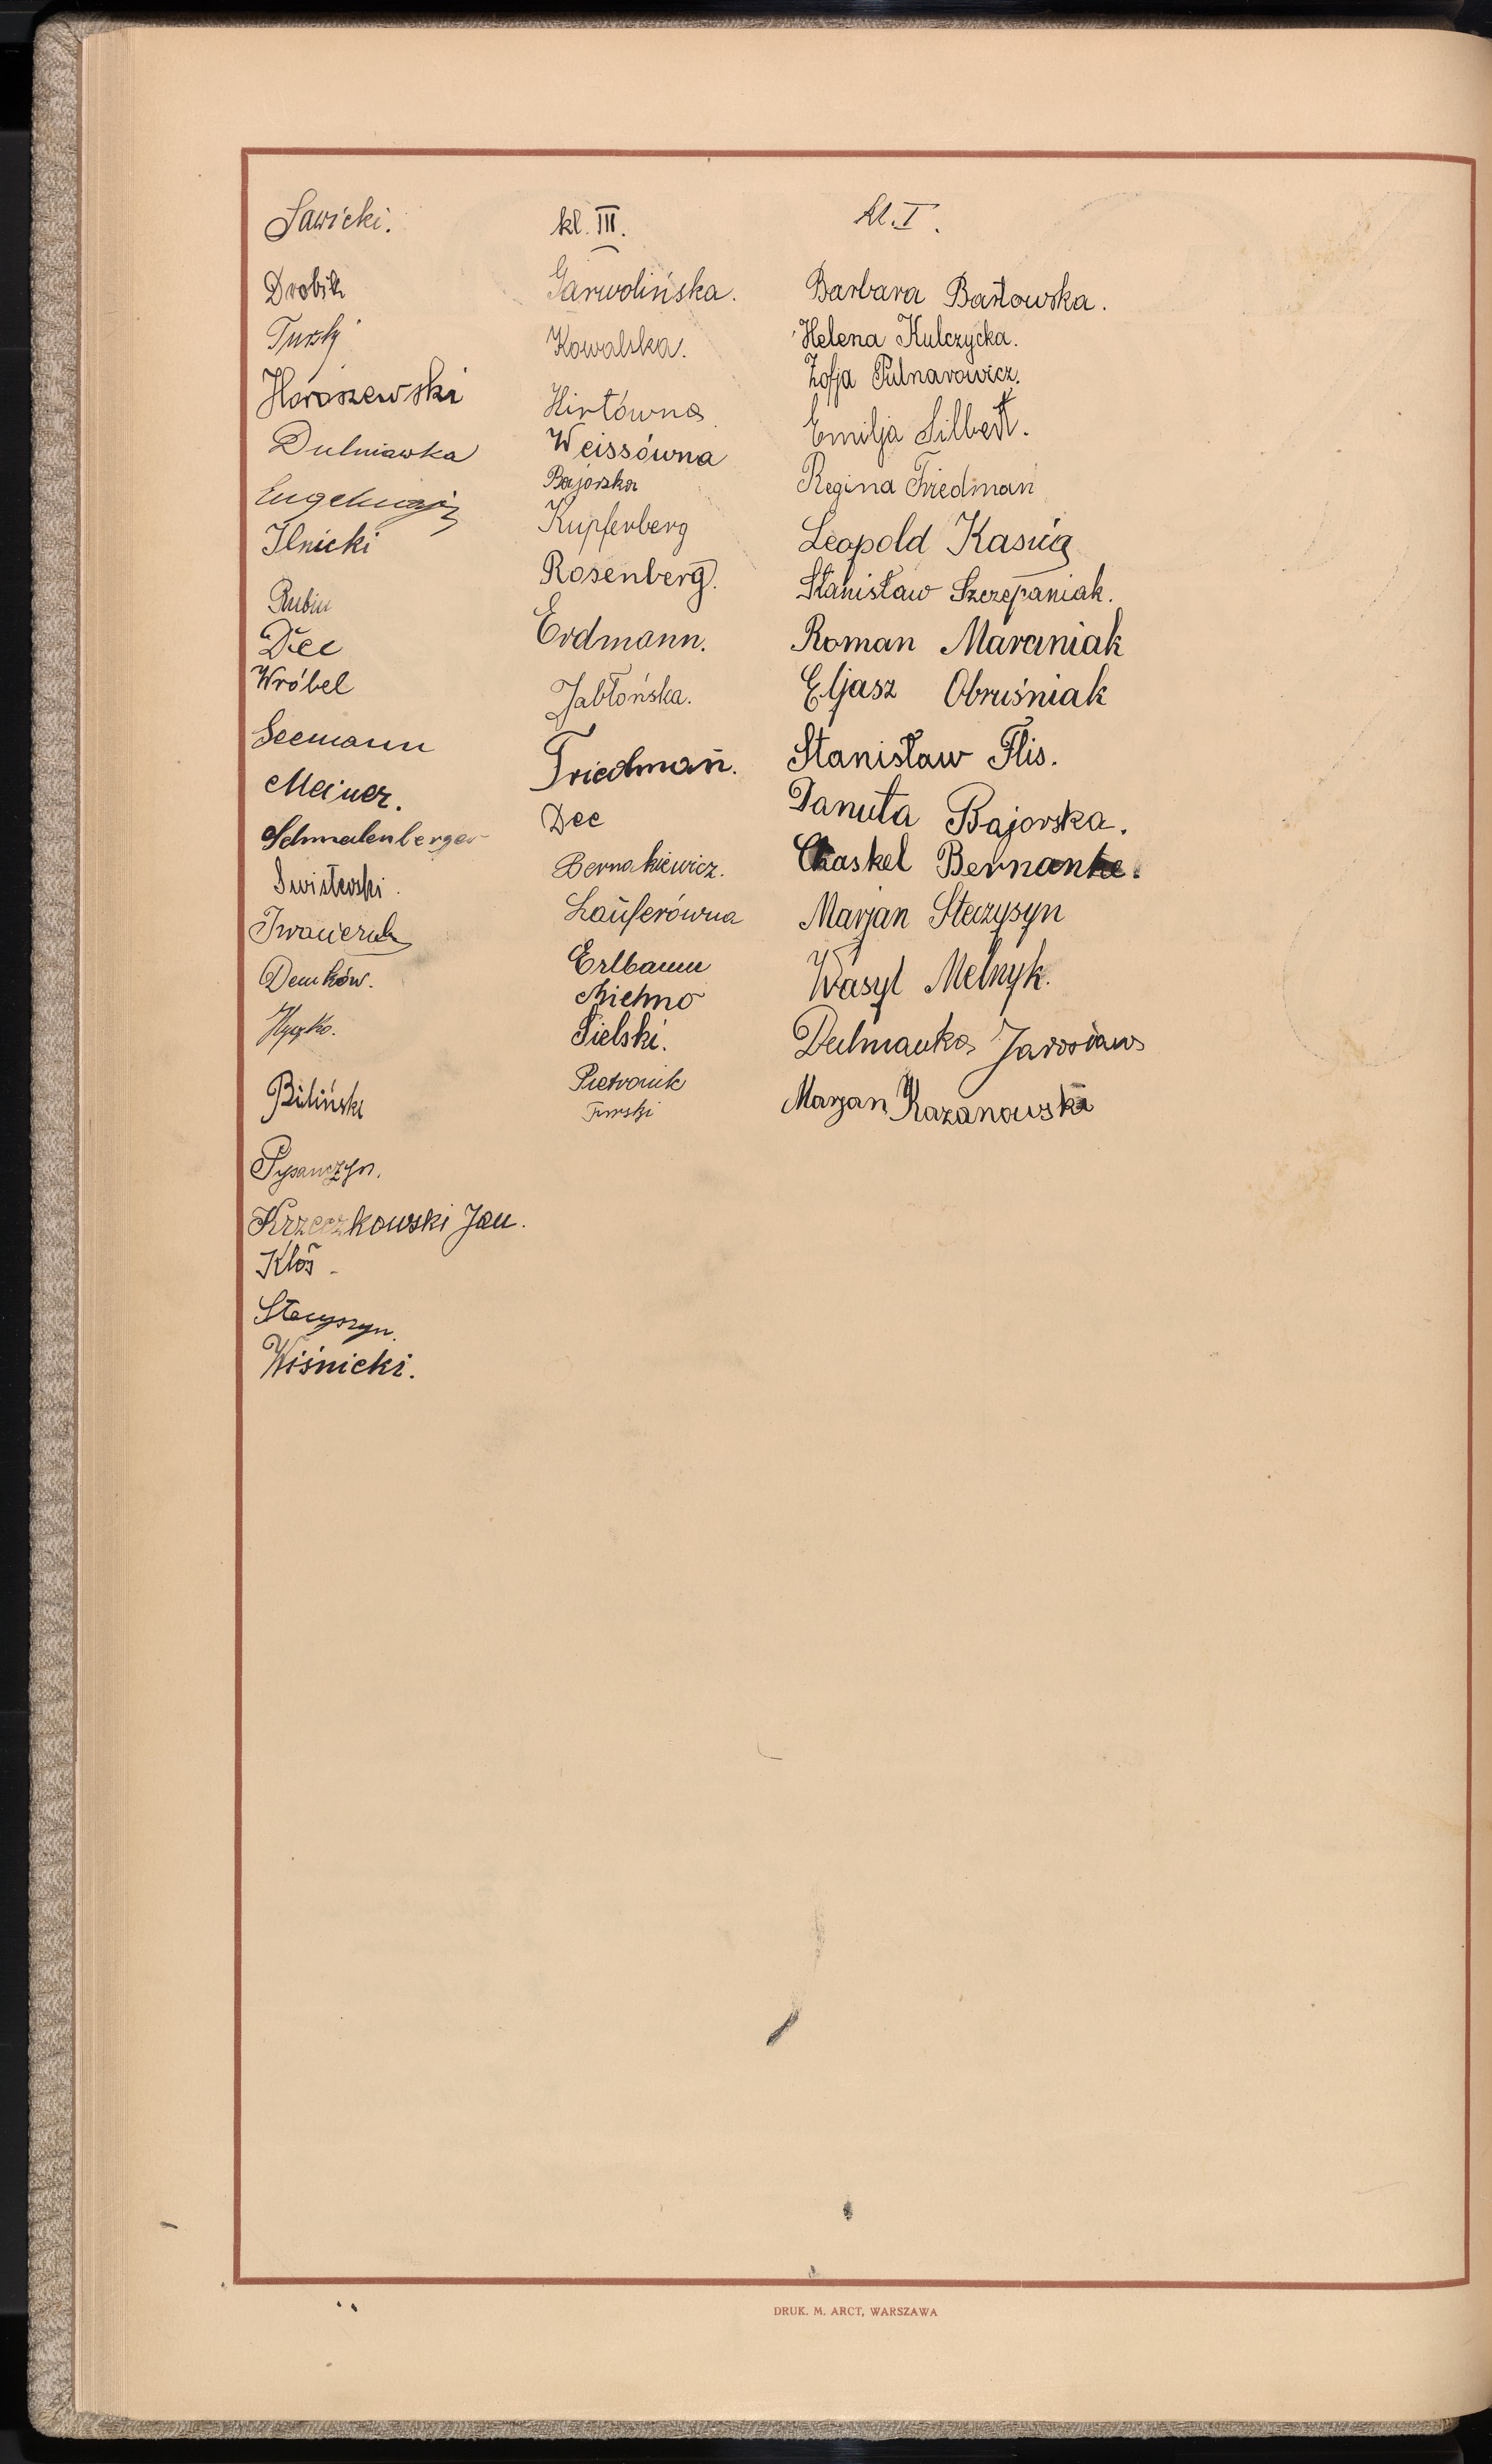 Sawicki.
Drobik
Turski
Horoszewski
Dulniawka
Ilnicki
Rubin
Dec
Wróbel
Seemann
Meiner.
Schmalenberger
Swistewski.
Iwaneruk
Demków.
Hyczko.
Biliński
Pysanczyn.
Krzeczkowski Jan.
Kłos
Stecyszyn.
Wiśnicki.
kl. III.
Garwolińska.
Kowalska.
Hirtówna
Weissówna
Bajorska
Kupferberg
Rosenberg.
Erdmann.
Jabłońska.
Friedman.
Dec
Bernakiewicz.
Lauferówna
Erlbaum
Michno
Sielski.
Pietronik
Turski
kl. I.
Barbara Barłowska.
Helena Kulczycka.
Zofja Pulnarowicz.
Emilja Silbert.
Regina Friedman
Leopold Kasiúg
Stanisław Szczepaniak.
Roman Marciniak
Eljasz Obruśniak
Stanisław Flis.
Danuta Bajorska.
Chaskel Bernanke.
Marjan Steczysyn
Wasyl Melnyk.
Dulmauka Jarosław
Marjan Kazanowski
DRUK. M. ARCT, WARSZAWA